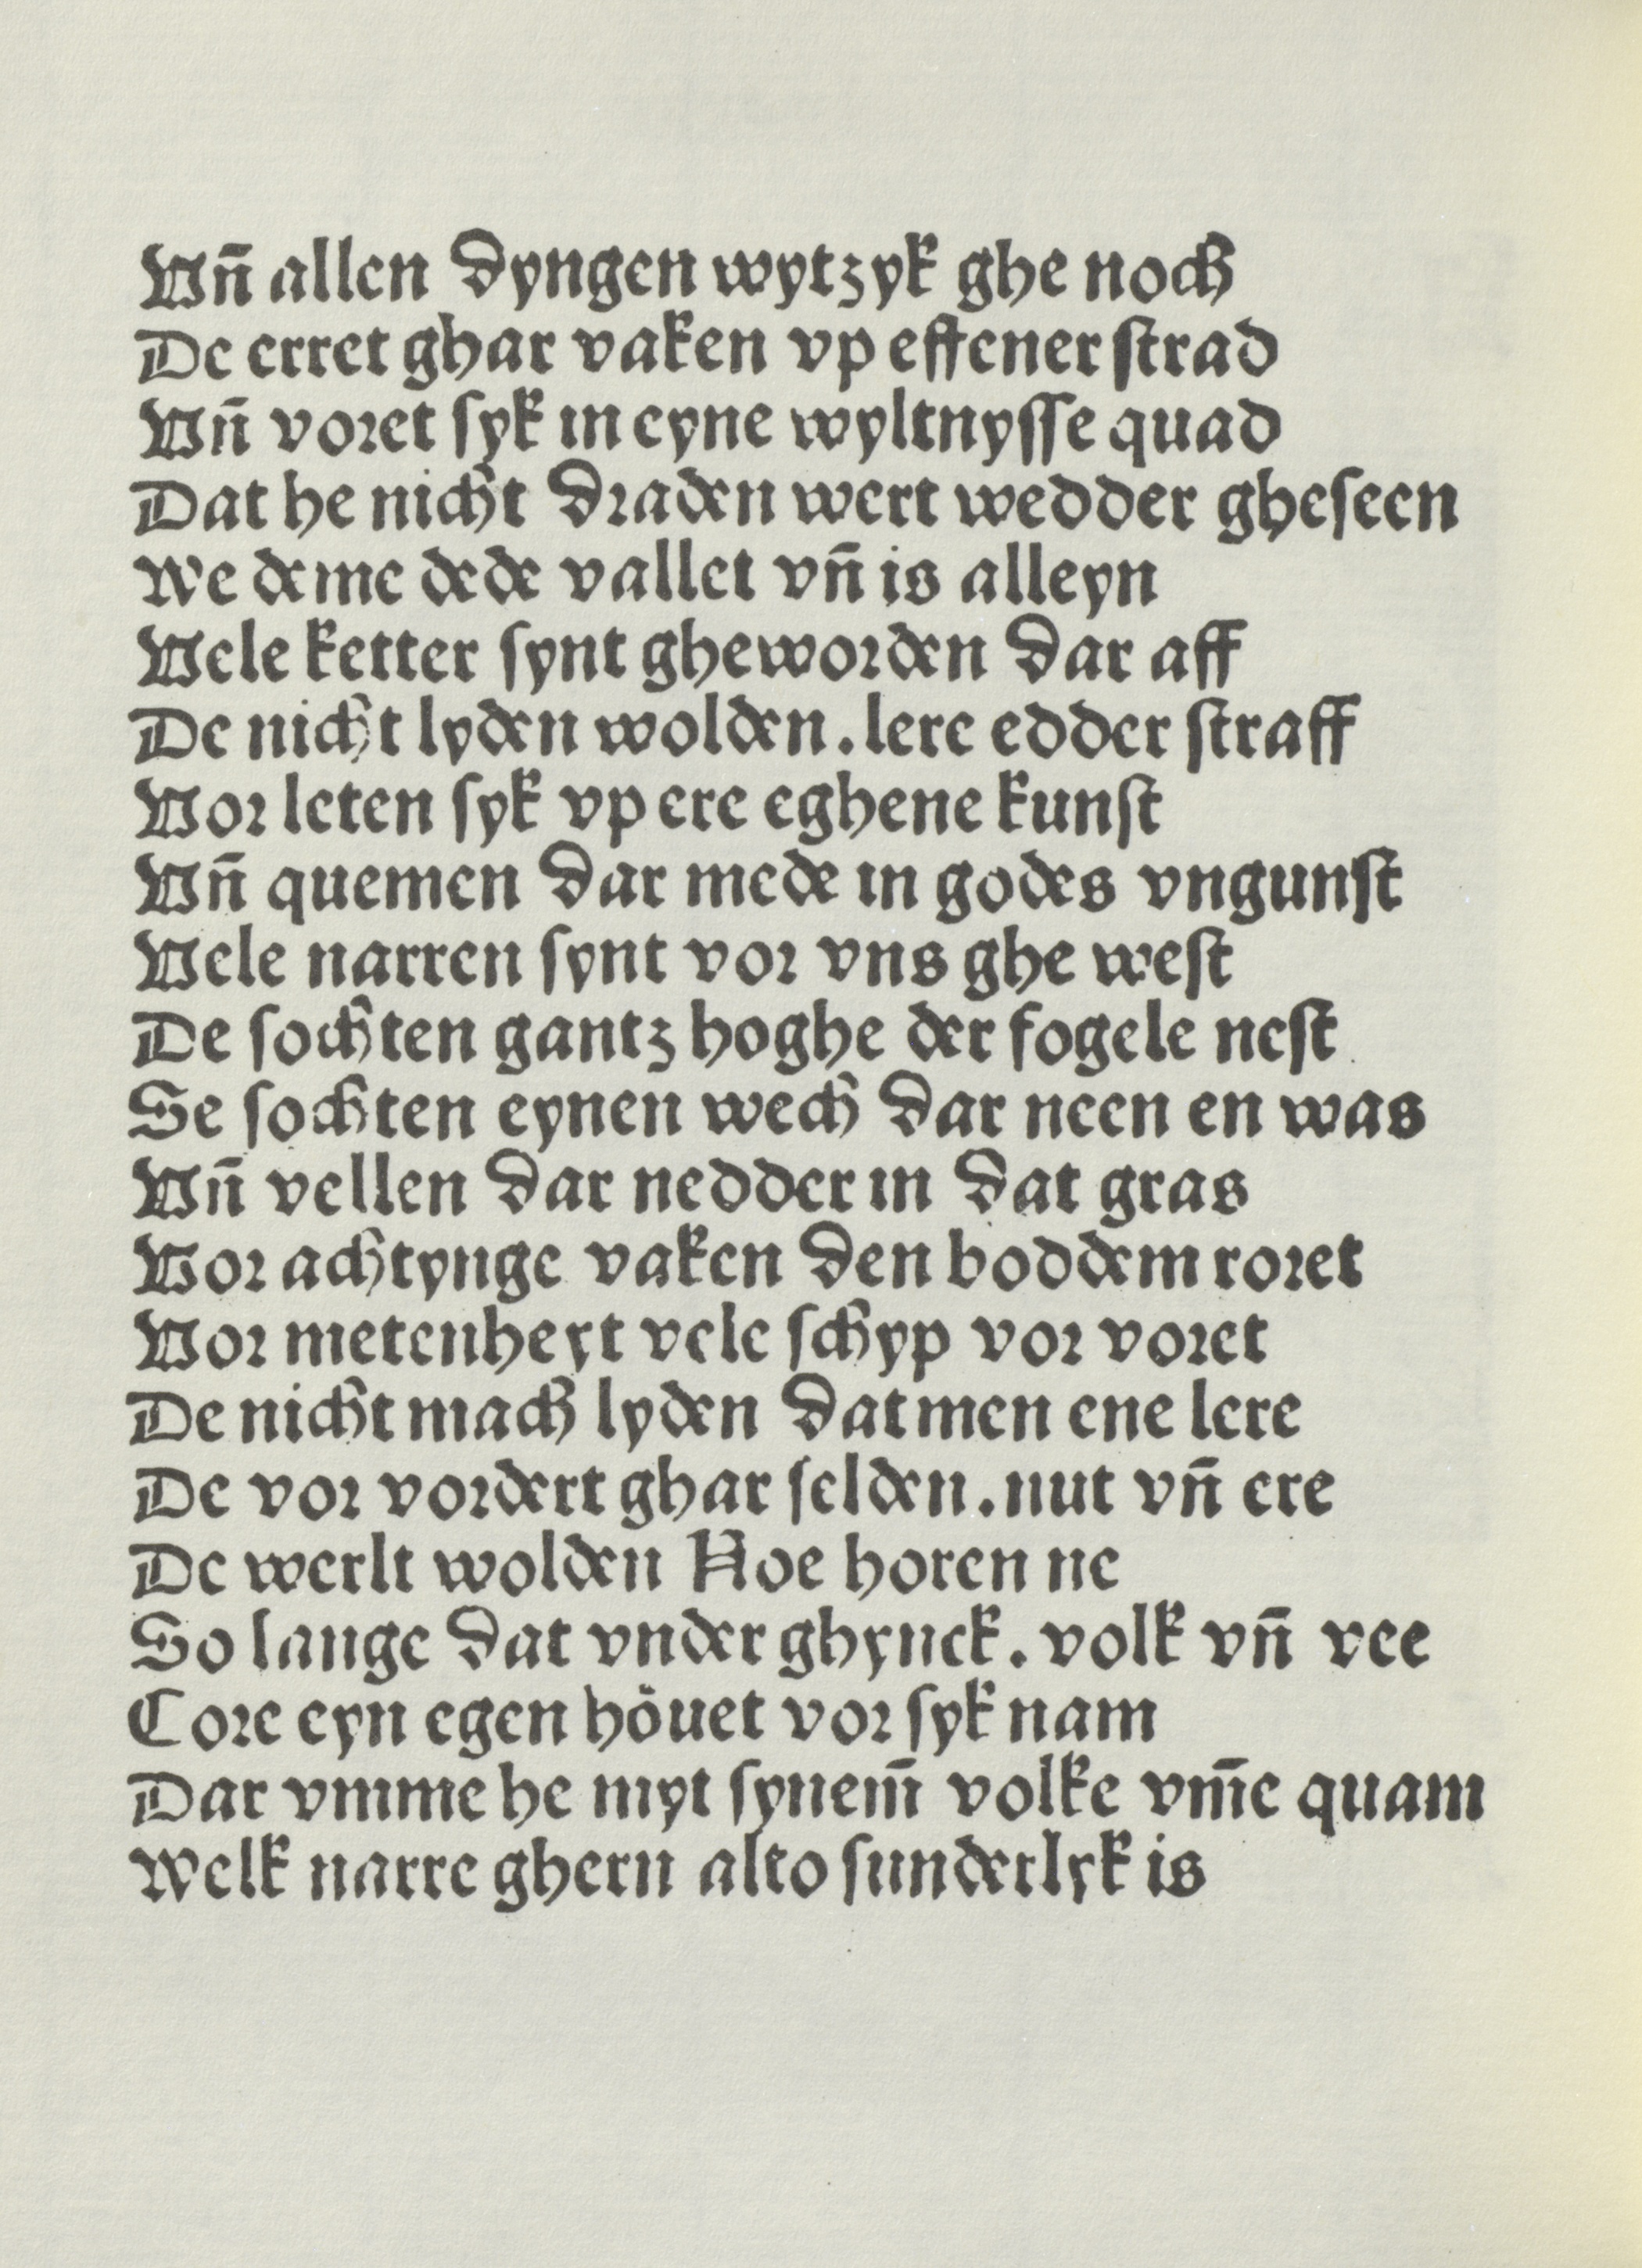 Vn̄ allen dyngen wytzyk ghe noch
De erret ghar vaken vp effener ſtrad
Vn̄ voret ſyk in eyne wyltnyſſe quad
Dat he nicht draden wert wedder gheſeen
We deme dede vallet vn̄ is alleyn
Vele ketter ſynt gheworden dar aff
De nicht lyden wolden. lere edder ſtraff
Vor leten ſyk vp ere eghene kunſt
Vn̄ quemen dar mede in godes vngunſt
Vele narren ſynt vor vns ghe weſt
De ſochten gantz hoghe der fogele neſt
Se ſochten eynen wech dar neen en was
Vn̄ vellen dar nedder in dat gras
Vor achtynge vaken den boddem roret
Vor metenheyt vele ſchyp vor voret
De nicht mach lyden dat men ene lere
De vor vordert ghar ſelden. nut vn̄ ere
De werlt wolden Noe horen ne
So lange dat vnder ghynck. volk vn̄ vee
Core eyn egen höuet vor ſyk nam
Dar vmme he myt ſynem̄ volke vm̄e quam
Welk narre ghern alto ſunderlyk is